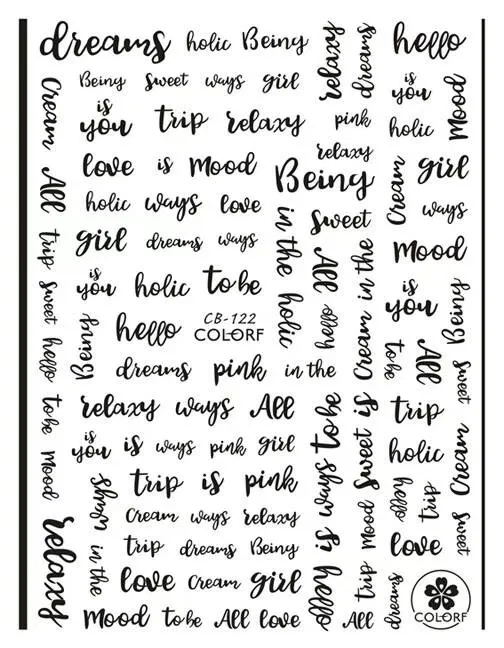 dreams holic Being
relaxy
dreams
hello
Being sweet ways girl
is
you
Mood
Cream
is
you
trip relaxy
pink
holic
relaxy
love is Mood
Being
Cream
girl
All
holic ways love
in the holic
Sweet
ways
trip
girl dreams ways
All
Cream in the
Mood
sweet
is
you
holic to be
hello
is
you
Being
hello
Being
hello
CB-122
COLORF
to be
All
sweet
dreams pink in the
to be
relaxy ways All
hello is ways to be
Mood Sweet is
trip
Cream
Mood
is
you
is ways pink girl
holic
ways
trip is pink
hello
trip
relaxy
Cream ways relaxy
love
sweet
in the
trip dreams Being
trip
love Cream girl
dreams
Mood to be All love
All
COLORF